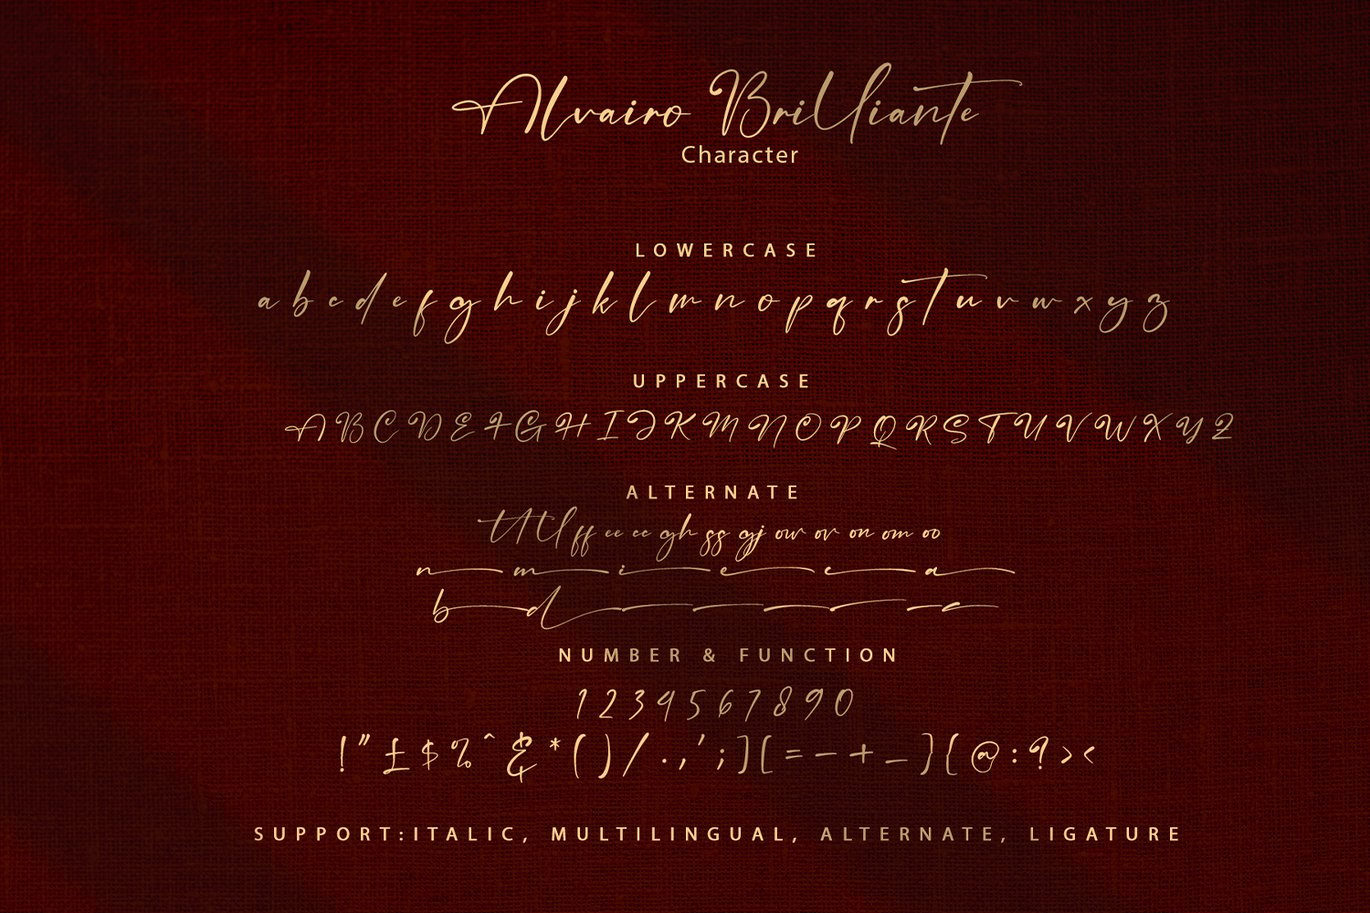 Alvairo Brilliante
Character
LOWERCASE
a b c d e f g h i j k l m n o p q r s t u v w x y z
UPPERCASE
A B C D E F G H I J K M N O P Q R S T U V W X Y Z
ALTERNATE
tt tl ff ee cc gh ss gj ow ov on om oo
n m i e c a
b d
NUMBER & FUNCTION
1 2 3 4 5 6 7 8 9 0
! " £ $ % ^ & * ( ) / . , ' ; ] [ = - + _ } { @ : ? > <
SUPPORT:ITALIC, MULTILINGUAL, ALTERNATE, LIGATURE